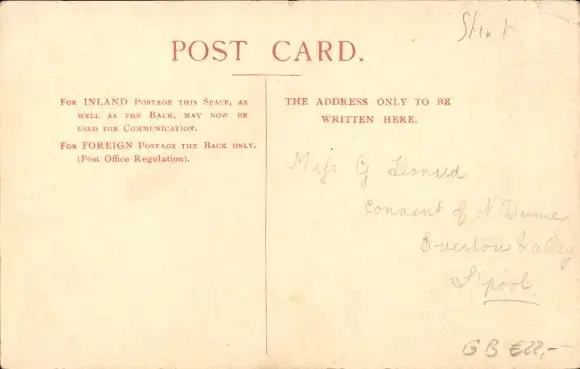 POST CARD.
FOR INLAND POSTAGE THIS SPACE, AS
WELL AS THE BACK, MAY NOW BE
USED FOR COMMUNICATION.
FOR FOREIGN POSTAGE THE BACK ONLY.
(Post Office Regulation).
THE ADDRESS ONLY TO BE
WRITTEN HERE.
Miss G Leonard
Convent of N Dame
Everton Valley
L'pool
GB £22,-